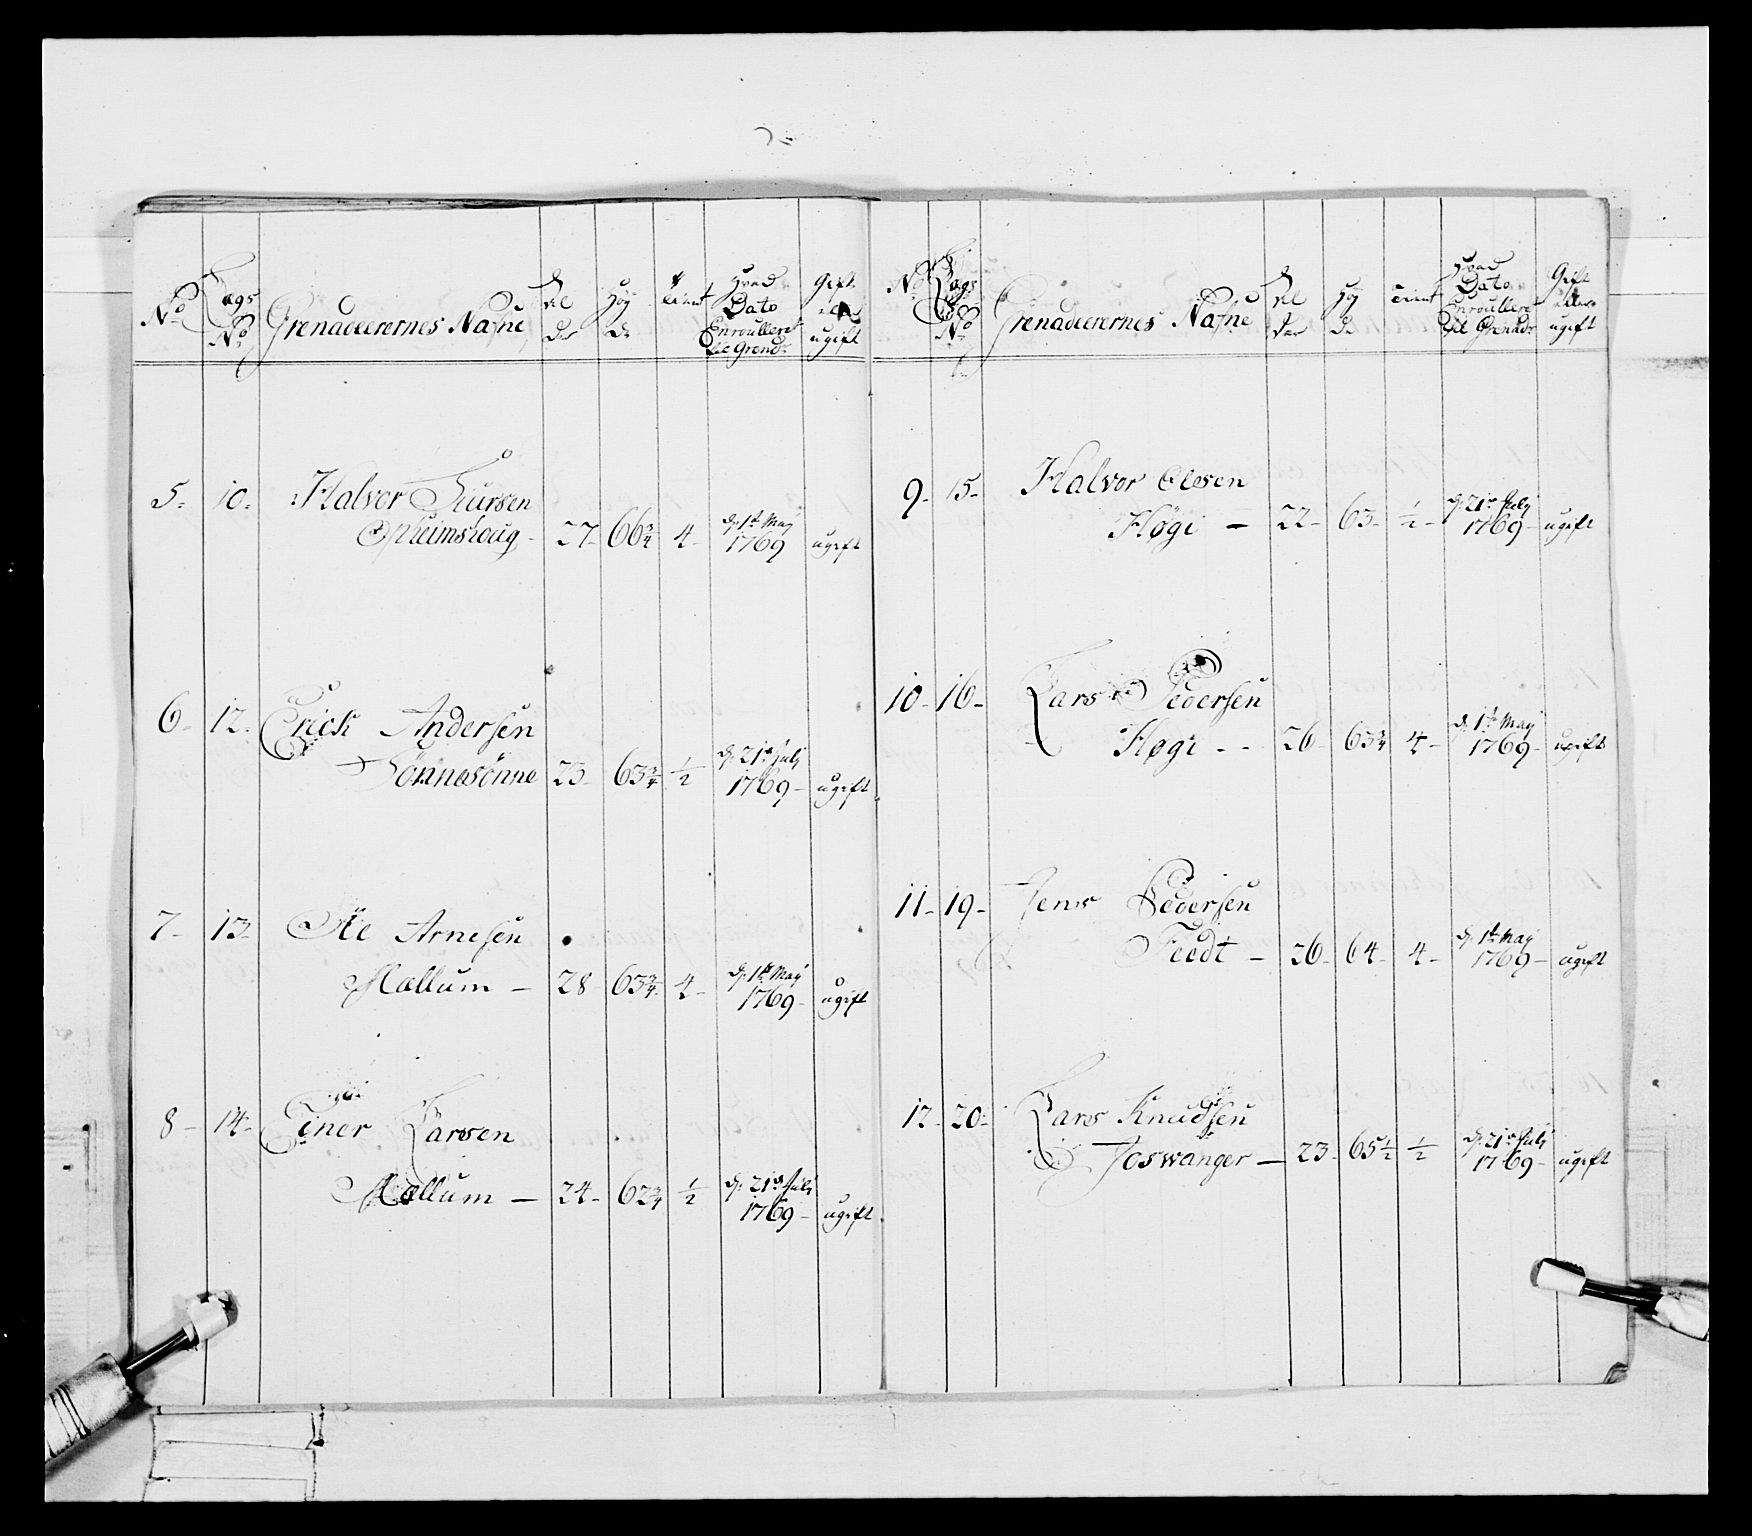 No Lægs No Grenadeerernes Nafne Al der Høy de tient Hvad Dato Enroulleret til Grend: Gift eller ugift
5. 10. Halvor Siursen
Opheimshoug - 27- 66 3/4 4- d: 1te May 1769 ugift
6- 12. Erick Andersen
Sönnesönne 23- 63 3/4 1/2 d: 21de Julj 1769- ugift
7- 13- Ole Arnesen
Mællum - 28- 63 3/4 4- d: 1te May 1769- ugift
8- 14- Einer Larsen
Mællum - 24- 62 3/4 1/2 d: 21de Julj 1769- ugift
No Lægs No Grenadeerernes Nafne Al der Høy de tient Hvad Dato Enroulleret til Grenadr Gift eller ugift
9- 15- Halvor Olesen
Høgi - 22- 63- 1/2- d: 21de Julj 1769- ugift
10- 16- Lars Pedersen
Høgi - - 26- 63 3/4 4- d: 1te May 1769- ugift
11- 19- Jens Pedersen
Tvedt - 26- 64- 4- d: 1te May 1769- ugift
12- 20- Lars Knudsen
Joswanger - 23- 65 1/2 1/2 d: 21de Julj 1769- ugift